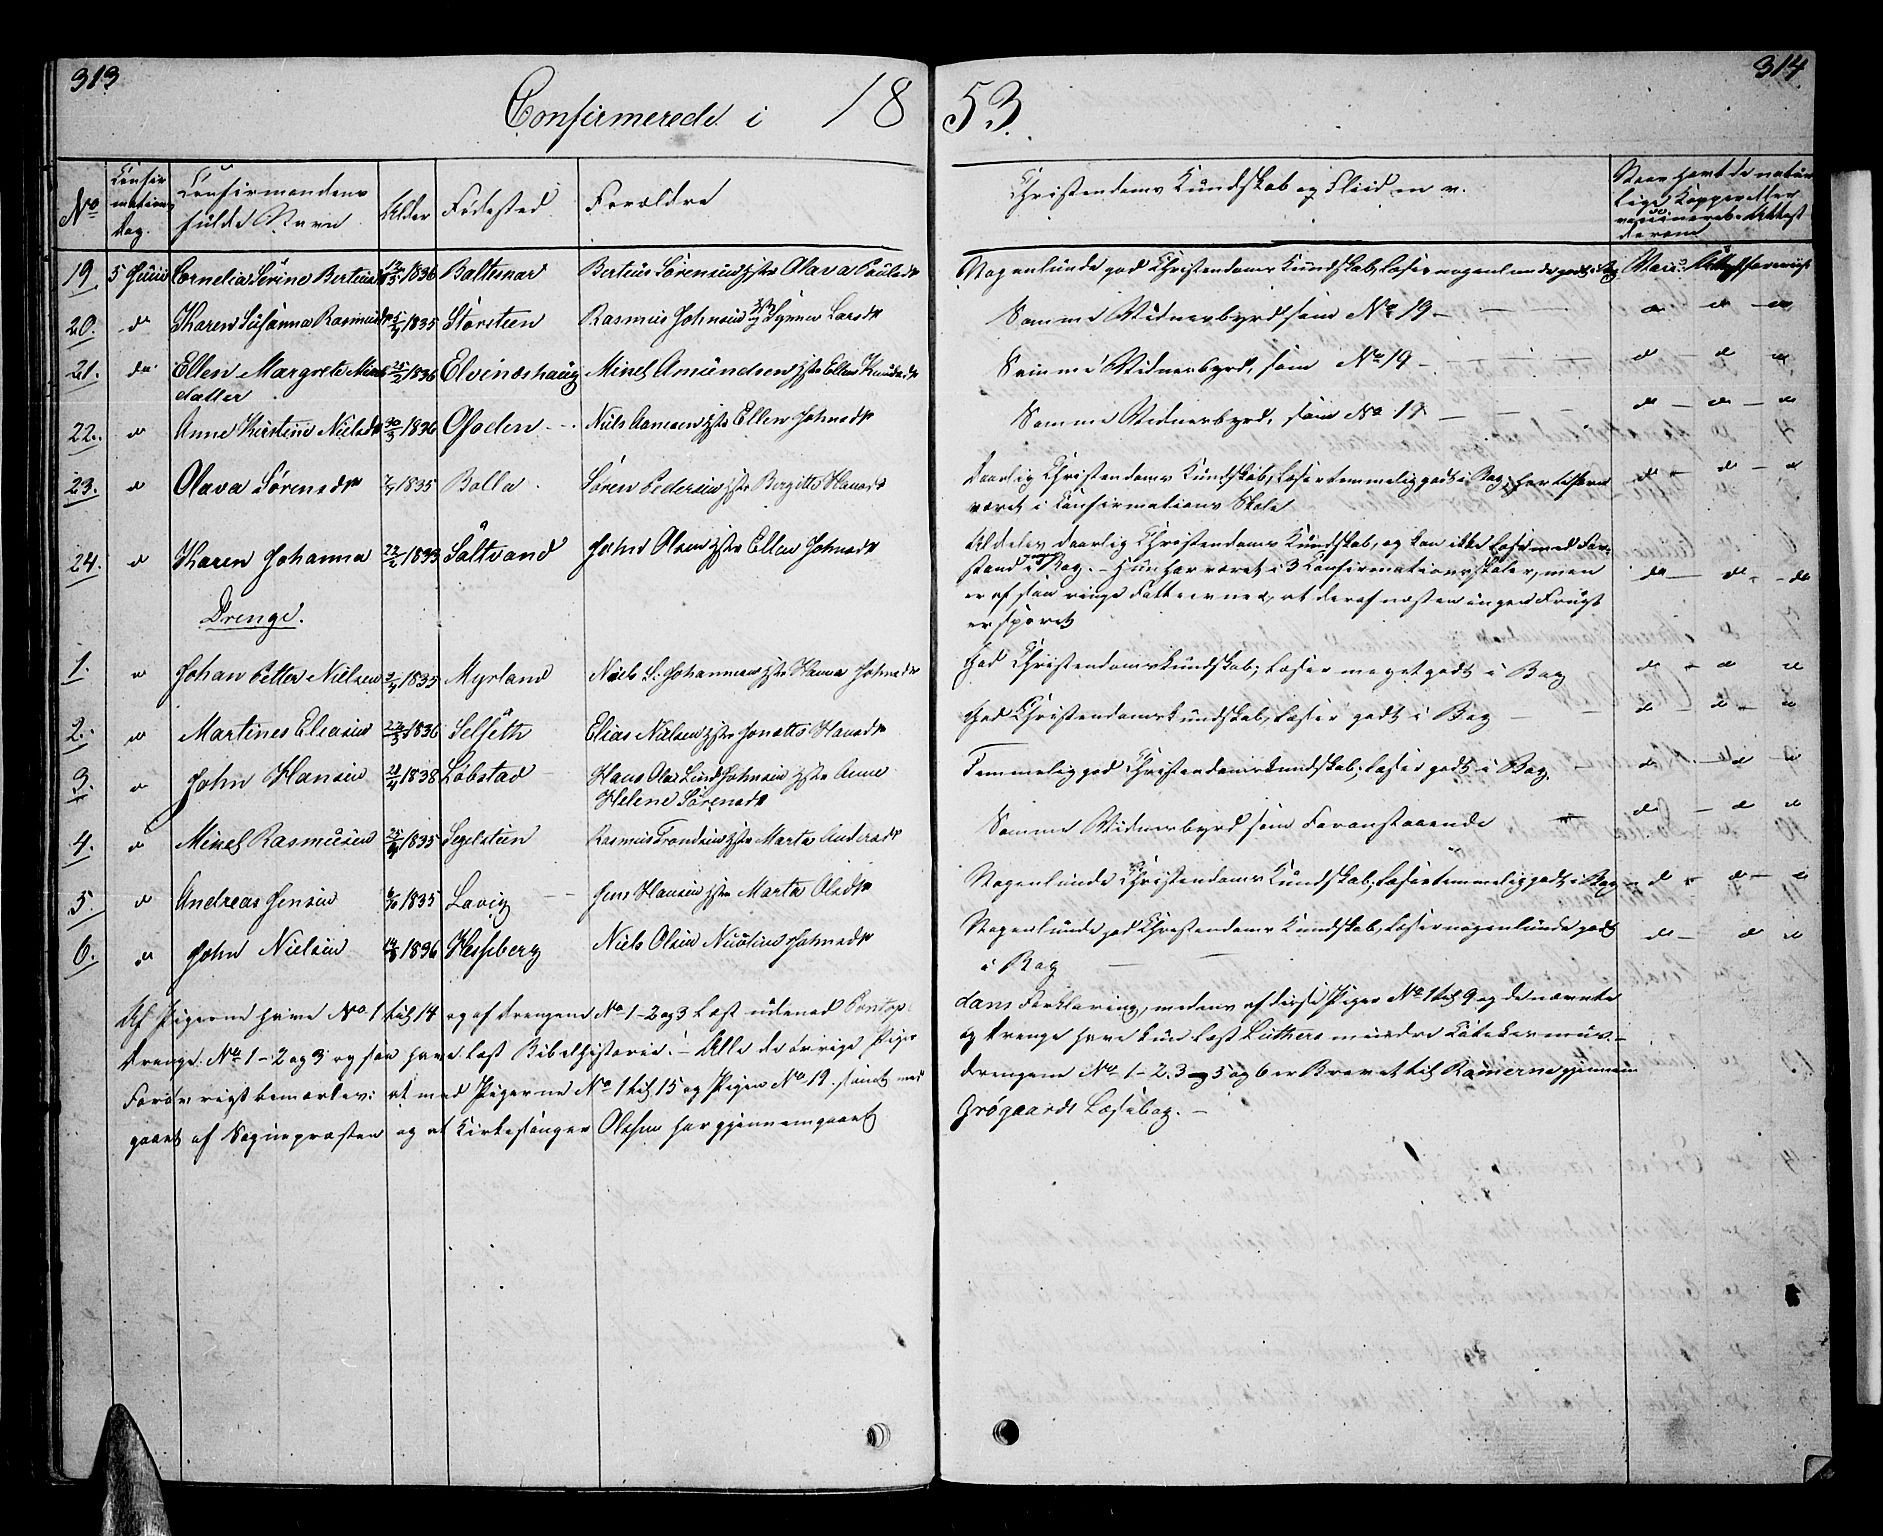 313
314
Confirmerede i 1853.
No
Confirmations Dag.
Confirmandens fulde Navn
Alder
Fødested
Forældre
Christendoms Kundskab og Fliid m. v.
19 5 Juni Cornelia Serine 1836 Baltesnar Bertius Sørensen Hstr Olava Paulsdr
Nogenlunde god Christendoms Kundskab, læser nogenlunde godt i Bog
20. do Karen Susanna Rasmusdr 1835 Storstien Rasmus Johnsen Larsdr
Samme Vidnesbyrd som No 19 -
21. do Ellen Margrete 1836 Elvindshaug Amundsen Hstr Ellen Knudsdr
datter
Samme Vidnesbyrd, som No 19 -
22. do Anne Kirstine Nielsdr 1836 Ofoden Niels Hstr Ellen Johnsdr
Samme Vidnesbyrd, som No 19
23. do Olava Sørensdr 1835 Balla Søren Pedersen Hstr Birgitte Hansdr
Daarlig Christendoms Kundskab, læser temmelig godt i Bog,
været i Confirmations Skole
24. do Karen Johanna Saltvand John Olsen Hstr Ellen Johnsdr
Aldeles daarlig Christendoms Kundskab, og kan ikke læse med For-
stand i Bog. - Hun har været i 3 Confirmationsskoler, men
er af saa ringe Fatteevne, at deraf næsten ingen Frugt
er sporet
Drenge.
1. do Johan Petter Nielsen 1835 Myrland Niels Johannesen Hstr Hanna Johnsdr
God Christendomskundskab; læser meget godt i Bog
2. do Martines Eliasen 1836 Selseth Elias Nielsen Hstr Hansdr
God Christendomskundskab, læser godt i Bog
3. do John Hansen 1838 Løbstad Hans Olai Lind Johnsen Hstr Anne
Helene Sørensdr
Temmelig god Christendomskundskab; læser godt i Bog.
4. do Rasmusen 1835 Segelstein Rasmus Trondsen Hstr Marta Andersdr
Samme Vidnesbyrd som Foranstaaende
5 do Andreas Jensen 1835 Lavig Jens Hansen Hstr Marta Olsdr
Nogenlunde Christendoms Kundskab, læser temmelig godt i Bog
6. do John Nielsen 1836 Hesjberg Niels Olsen Johnsdr
Nogenlunde god Christendoms Kundskab, læser nogenlunde godt
i Bog
Af Pigerne have No 1 til 14 og af Drengene No 1-2 og 3 læst udenad Pontop-
dans Forklaring, medens af disse Piger No 1 til 9 og de nævnte
Drenge No 1-2 og 3 ogsaa have læst Bibelhistorie. - Alle de øvrige Piger
og Drenge have kun læst Luthers mindre Catekismus. -
Forøvrigt bemærkes: at med Pigerne No 1 til 15 og Pigen No 19. samt med
Drengene No 1-2. 3 og 5 og 6 er Brevet til Romerne gjennem-
gaaet af Sognepræsten og at Kirkesanger Olsen har gjennemgaaet
Grøgaards Læsebog. -